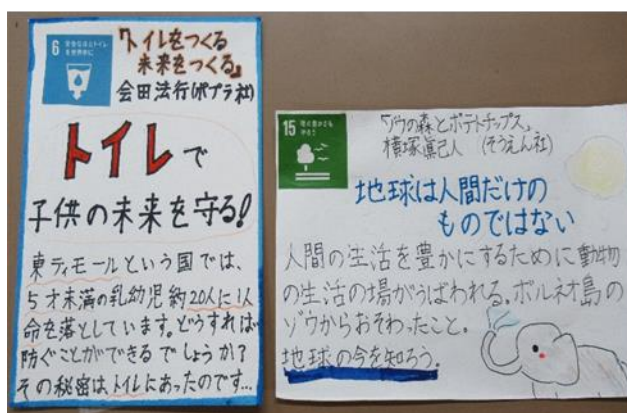 6 安全な水とトイレ
を世界中に
『トイレをつくる
未来をつくる』
会田法行(ポプラ社)
トイレで
子供の未来を守る!
東ティモールという国では、
5才未満の乳幼児約20人に1人
命を落としています。どうすれば
防ぐことができるでしょうか?
その秘密は、トイレにあったのです…
15 陸の豊かさも
守ろう
『ゾウの森とポテトチップス』
横塚眞己人 (そうえん社)
地球は人間だけの
ものではない
人間の生活を豊かにするために動物
の生活の場がうばわれる。ボルネオ島の
ゾウからおそわったこと。
地球の今を知ろう。